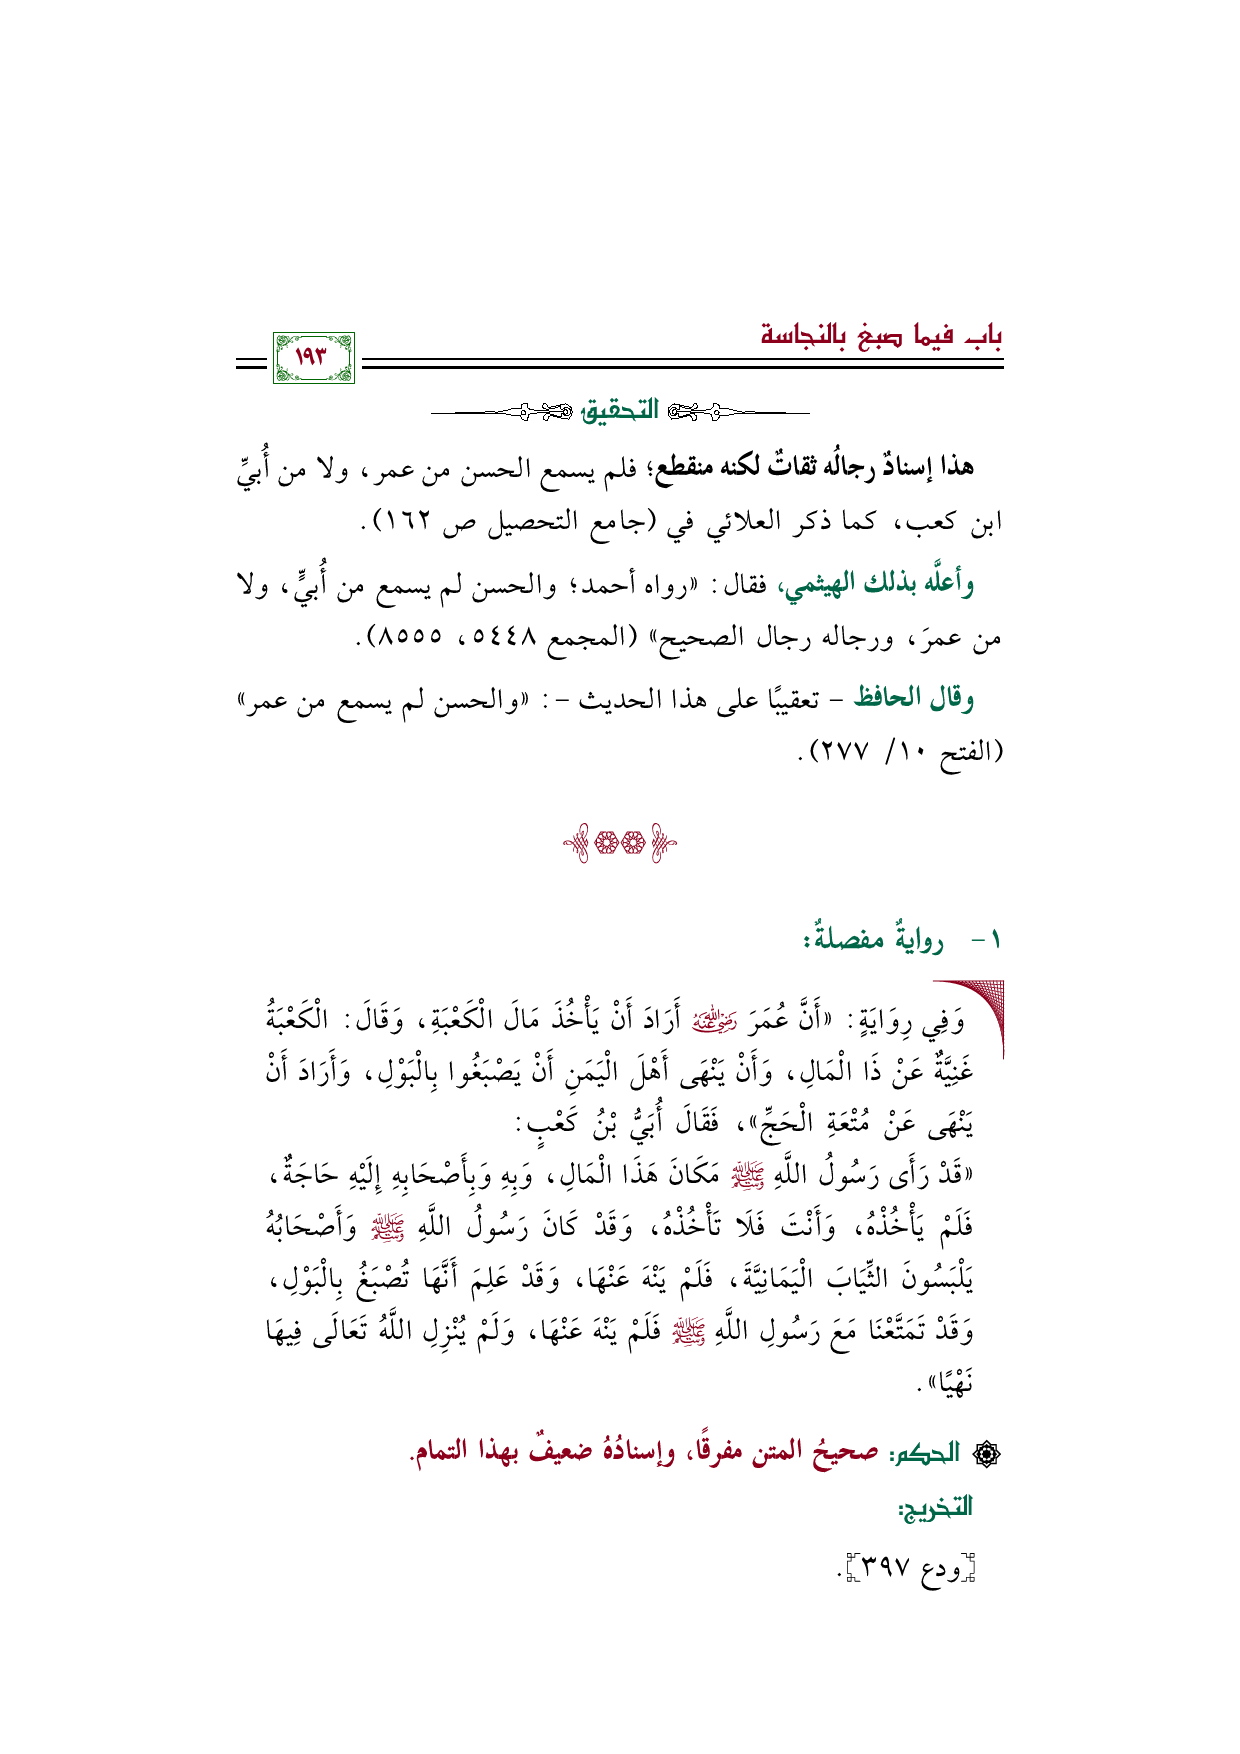 باب فيما صبغ بالنجاسة
١٩٣
التحقيق
هذا إسنادٌ رجالُه ثقاتٌ لكنه منقطع؛ فلم يسمع الحسن من عمر، ولا من أُبيِّ
ابن كعب، كما ذكر العلائي في (جامع التحصيل ص ١٦٢).
وأعلَّه بذلك الهيثمي، فقال: «رواه أحمد؛ والحسن لم يسمع من أُبيٍّ، ولا
من عمرَ، ورجاله رجال الصحيح» (المجمع ٥٤٤٨، ٨٥٥٥).
وقال الحافظ – تعقيبًا على هذا الحديث –: «والحسن لم يسمع من عمر»
(الفتح ١٠/ ٢٧٧).
١– روايةٌ مفصلةٌ:
وَفِي رِوَايَةٍ: «أَنَّ عُمَرَ رضي الله عنه أَرَادَ أَنْ يَأْخُذَ مَالَ الْكَعْبَةِ، وَقَالَ: الْكَعْبَةُ
غَنِيَّةٌ عَنْ ذَا الْمَالِ، وَأَنْ يَنْهَى أَهْلَ الْيَمَنِ أَنْ يَصْبَغُوا بِالْبَوْلِ، وَأَرَادَ أَنْ
يَنْهَى عَنْ مُتْعَةِ الْحَجِّ»، فَقَالَ أُبَيُّ بْنُ كَعْبٍ:
«قَدْ رَأَى رَسُولُ اللَّهِ ﷺ مَكَانَ هَذَا الْمَالِ، وَبِهِ وَبِأَصْحَابِهِ إِلَيْهِ حَاجَةٌ،
فَلَمْ يَأْخُذْهُ، وَأَنْتَ فَلَا تَأْخُذْهُ، وَقَدْ كَانَ رَسُولُ اللَّهِ ﷺ وَأَصْحَابُهُ
يَلْبَسُونَ الثِّيَابَ الْيَمَانِيَّةَ، فَلَمْ يَنْهَ عَنْهَا، وَقَدْ عَلِمَ أَنَّهَا تُصْبَغُ بِالْبَوْلِ،
وَقَدْ تَمَتَّعْنَا مَعَ رَسُولِ اللَّهِ ﷺ فَلَمْ يَنْهَ عَنْهَا، وَلَمْ يُنْزِلِ اللَّهُ تَعَالَى فِيهَا
نَهْيًا».
الحكم: صحيحُ المتن مفرقًا، وإسنادُهُ ضعيفٌ بهذا التمام.
التخريج:
[ودع ٣٩٧].